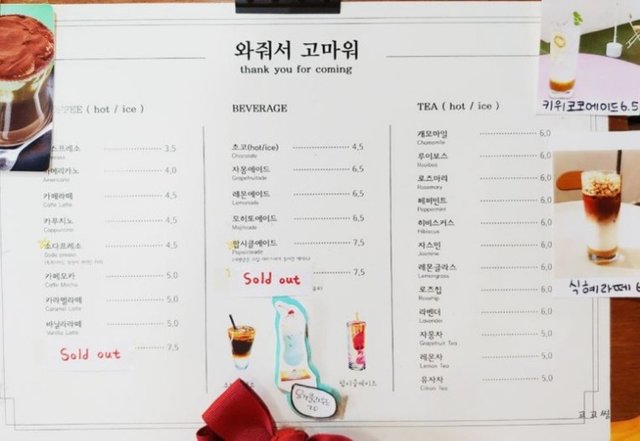 와줘서 고마워
thank you for coming
COFFEE ( hot / ice )
에스프레소 3,5
아메리카노 4,0
Americano
카페라떼 4,5
Caffe Latte
카푸치노 4,5
Cappuccino
소다프레소 4,5
카페모카 5,0
Caffe Mocha
카라멜라떼 5,0
Caramel Latte
바닐라라떼 5,0
Vanilla Latte
7,5
Sold out
BEVERAGE
쵸코(hot/ice) 4,5
Chocolate
자몽에이드 6,5
Grapefruitade
레몬에이드 6,5
Lemonade
모히또에이드 6,5
Mojitoade
팝시클에이드 7,5
Popsicleade
7,5
Sold out
팝시클에이드
TEA ( hot / ice )
캐모마일 6,0
Chamomile
루이보스 6,0
Rooibos
로즈마리 6,0
Rosemary
페퍼민트 6,0
Peppermint
히비스커스 6,0
Hibiscus
자스민 6,0
Jasmine
레몬글라스 6,0
Lemongrass
로즈힙 6,0
Rosehip
라벤더 6,0
Lavender
자몽차 5,0
Grapefruit Tea
레몬차 5,0
Lemon Tea
유자차 5,0
Citron Tea
키위코코에이드 6.5
식혜라떼 6